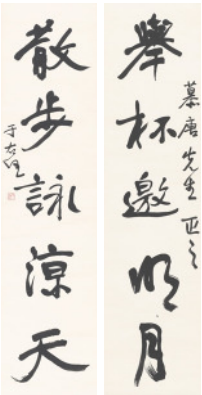 舉杯邀明月
慕唐先生正之
散步詠涼天
于右任